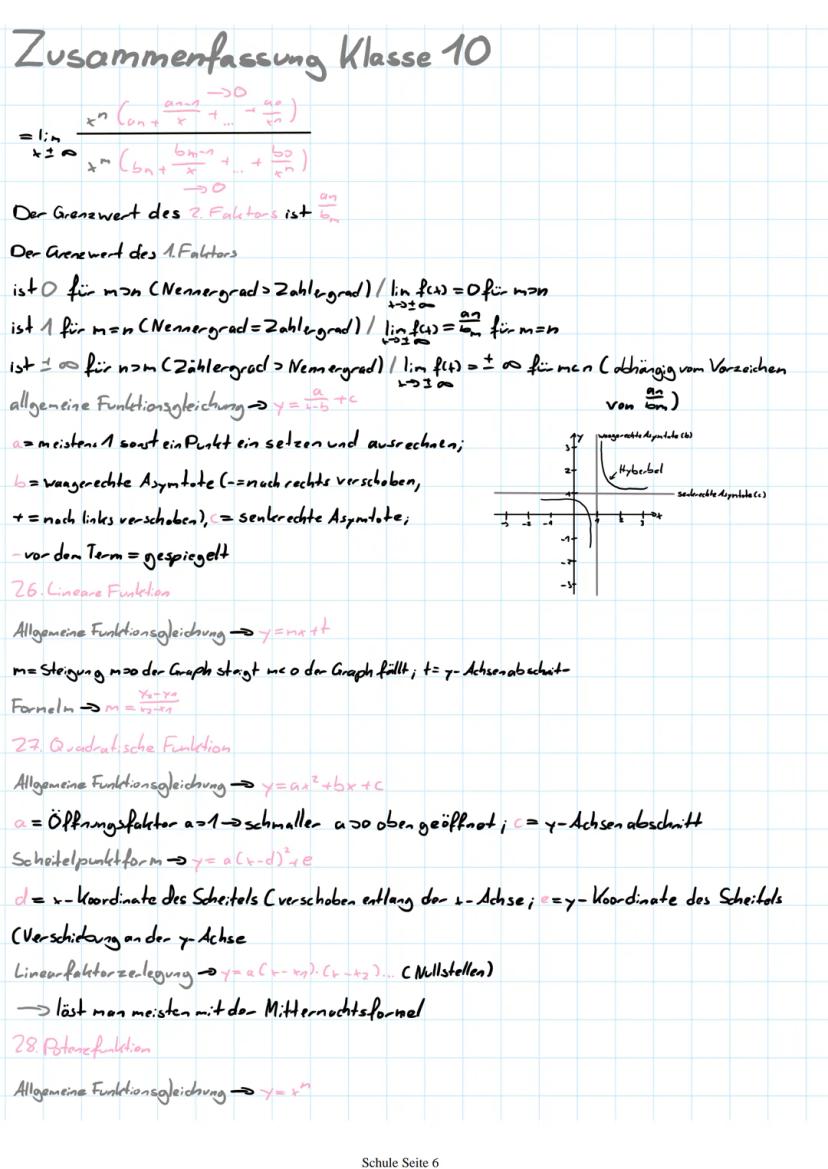 Zusammenfassung Klasse 10
= lim x ± ∞ x^n (an + an-1/x + ... + a0/x^n) →0 / x^m (bn + bm-n/x + ... + b0/x^n) →0
Der Grenzwert des 2. Faktors ist an/bm
Der Grenzwert des 1. Faktors
ist 0 für m>n (Nennergrad > Zahlergrad) / lim x→±∞ f(x) = 0 für m>n
ist 1 für m=n (Nennergrad = Zahlergrad) / lim x→±∞ f(x) = an/bm für m=n
ist ± ∞ für n>m (Zählergrad > Nennergrad) / lim x→±∞ f(x) = ± ∞ für m<n (abhängig vom Vorzeichen
von an/bm)
allgemeine Funktionsgleichung → y = a/x-b + c
a = meistens 1 sonst ein Punkt ein setzen und ausrechnen;
b = waagerechte Asymtote (-= nach rechts verschoben,
+ = nach links verschoben), c = senkrechte Asymtote;
- vor dem Term = gespiegelt
y
waagerechte Asymtote (b)
Hyberbel
senkrechte Asymtote (c)
x
26. Lineare Funktion
Allgemeine Funktionsgleichung → y = mx + t
m = Steigung m>0 der Graph steigt m<0 der Graph fällt; t = y-Achsenabschnit-
Formeln → m =
27. Quadratische Funktion
Allgemeine Funktionsgleichung → y = ax² + bx + c
a = Öffnungsfaktor a>1 → schmaller a>0 oben geöffnet; c = y-Achsenabschnitt
Scheitelpunktform → y = a(x-d)² + e
d = x-Koordinate des Scheitels (verschoben entlang der x-Achse; e = y-Koordinate des Scheitels
(Verschiebung an der y-Achse
Linearfaktorzerlegung → y = a(x-x1)·(x-x2)... (Nullstellen)
→ löst man meisten mit der Mitternachtsformel
28. Potenzfunktion
Allgemeine Funktionsgleichung → y = x^n
Schule Seite 6